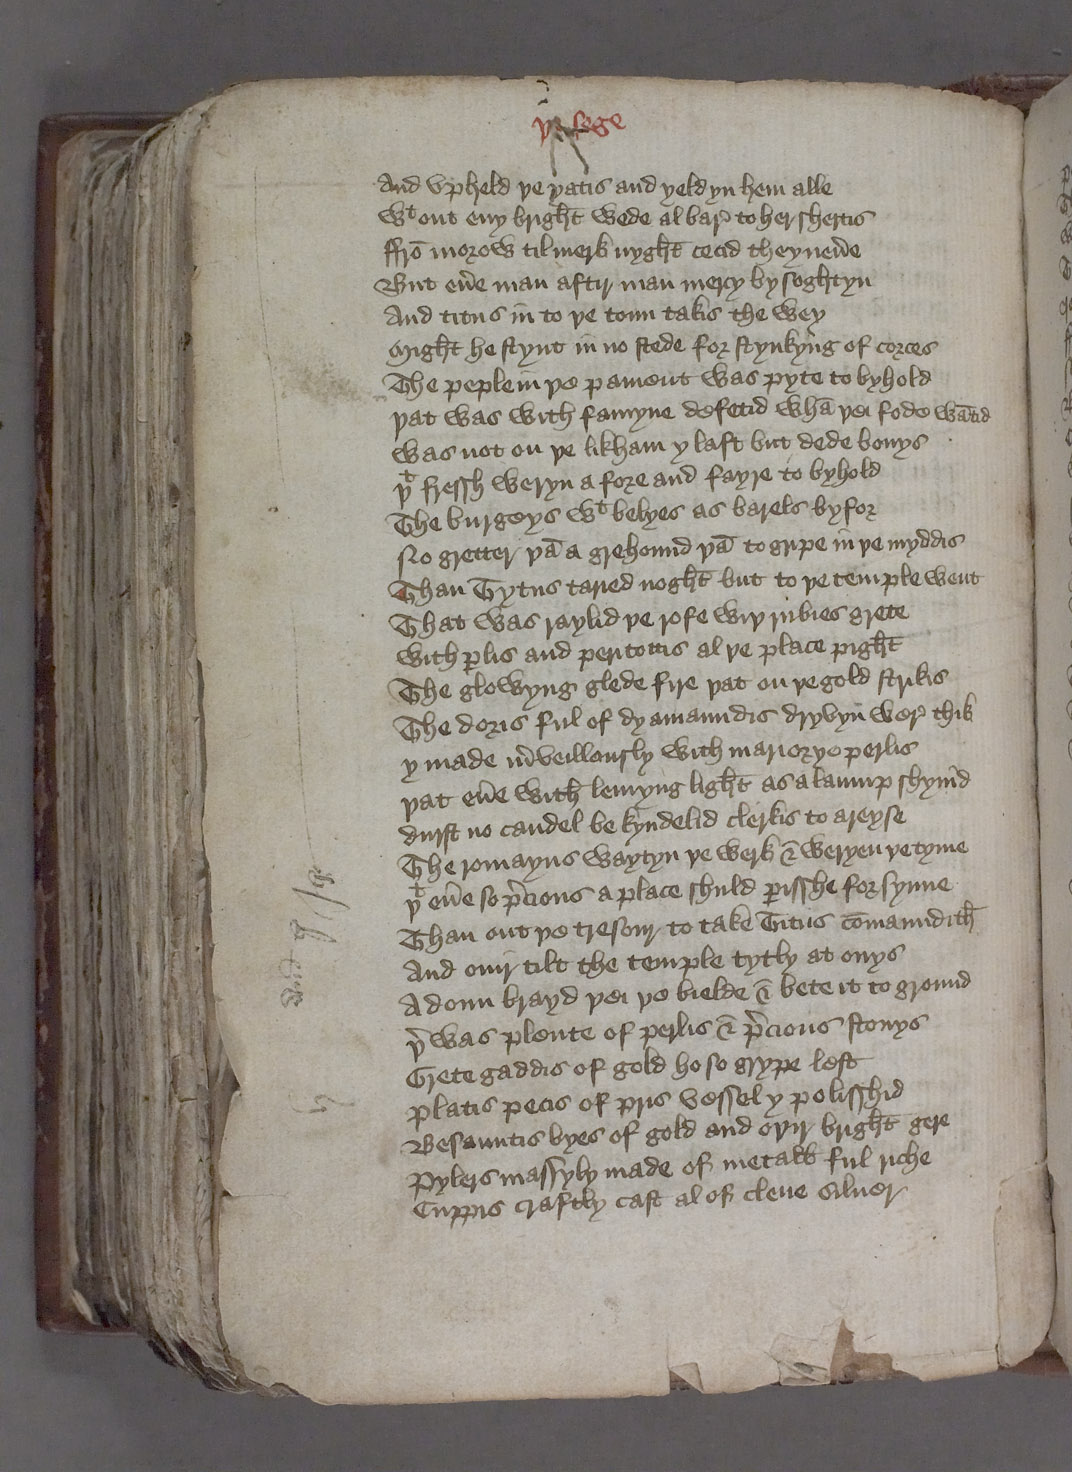 ye sege
And vpheld ye yatis and yeldyn hem alle
Wt out eny bright wede al bar to her shertis
ffro morow til merk nyght cecid they neue
But eue man aftir man mercy by soghtyn
And titus in to ye toun takis the wey
Might he stynt in no stede for stynkyng of corces
The peple in ye pament was pyte to byhold
yat was with famyne defetid whā yei fode wātid
was not on ye likham y laft but dede bonys
yt fressh weryn a fore and fayre to byhold
The burgeys wt belyes as barels byfor
No gretter yā a grehound yā to gripe in ye myddis
Than Tytus taried noght but to ye temple went
That was raylid ye rofe wiy rubies grete
With perlis and peritottis al ye place pight
The glowyng glede fire yat on ye gold strikis
The doris ful of dyamaundis dryvyn wer thik
y made m̄veillously with mariorye perlis
yat eue with lemyng light as a laump shynid
durst no candel be kyndelid clerkis to areyse
The romayns waytyn ye werk & weryen ye tyme
yt eue so p̄cious a place shuld perisshe for synne
Than out ye tresour to take Titus cōmaundith
And ouir tilt the temple tytly at onys
A doun brayd yei ye bielde & bete it to ground
yer was plente of perlis & p̄cious stonys
Grete gaddis of gold ho so grype lest
platis pecis of pris vessel y polisshid
Besauntis byes of gold and oyir bright gere
Pylers massyly made of metall ful riche
Cuppis craftly cast al of clene siluer